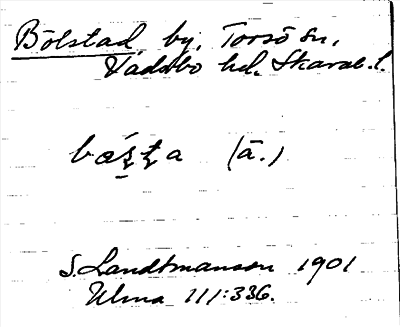 Bölstad, by, Torsö sn,
Vadsbo hd, Skarab. l.
(ā.)
S. Landtmanson 1901
Ulma 111:336.